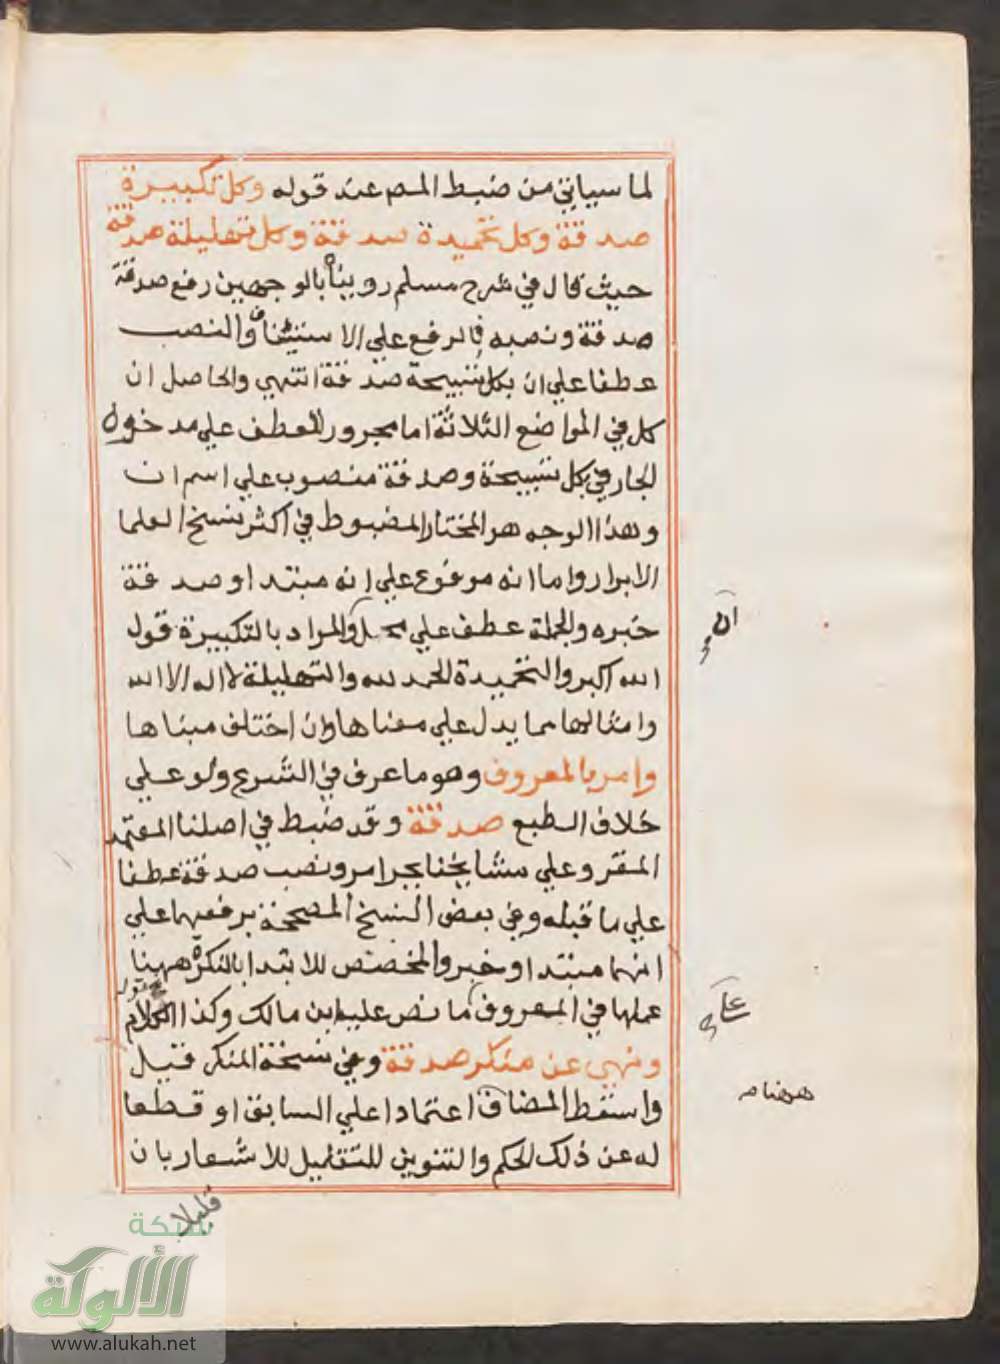 لما سياتي من ضبط المص عند قوله وكل تكبيرة
صدقة وكل تحميدة صدقة وكل تهليلة صدقة
حيث قال في شرح مسلم رويناه بالوجهين رفع صدقة
صدقة ونصبه فالرفع علي الاستيناف والنصب
عطفا علي ان بكل تسبيحة صدقة انتهي والحاصل ان
كل في المواضع الثلاثة اما مجرور للعطف علي مدخول
الجار في بكل تسبيحة وصدقة منصوب علي اسم ان
وهذا الوجه هو المختار المضبوط في اكثر نسخ العلما
الابرار واما انه مرفوع علي انه مبتدا وصدقة
خبره والجملة عطف علي محل والمراد بالتكبيرة قول
الله اكبر والتحميدة الحمد لله والتهليلة لا اله الا الله
وامثالها مما يدل علي معناها وان اختلف مبناها
وامر بالمعروف وهو ما عرف في الشرع ولو علي
خلاف الطبع صدقة وقد ضبط في اصلنا المعتمد
المقرو علي مشايخنا بجر امر ونصب صدقة عطفا
علي ما قبله وفي بعض النسخ المصححة برفعهما علي
انهما مبتدا وخبر والمخصص للابتدا بالنكرة ههنا
عملها في المعروف كما نص عليه ابن مالك وكذا الكلام
ونهي عن منكر صدقة وفي نسخة المنكر قيل
واسقط المضاف اعتمادا علي السابق او قطعا
له عن ذلك الحكم والتنوين للتقليل للاشعار بان
قليلا
ان
علي
ههنا
شبكة
الألوكة
www.alukah.net